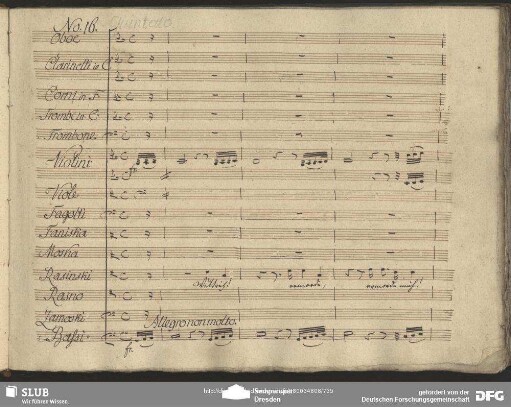 No. 16.
Oboe
Clarinetti in C
Corni in F
Trombe in C
Trombone
Violini
Viole
Fagotti
Faniska
Moska
Rasinski
Rasno
Zamoski
Bassi
Allegro non molto.
SLUB
Wir führen Wissen.
Dresden
gefördert von der
Deutschen Forschungsgemeinschaft
DFG